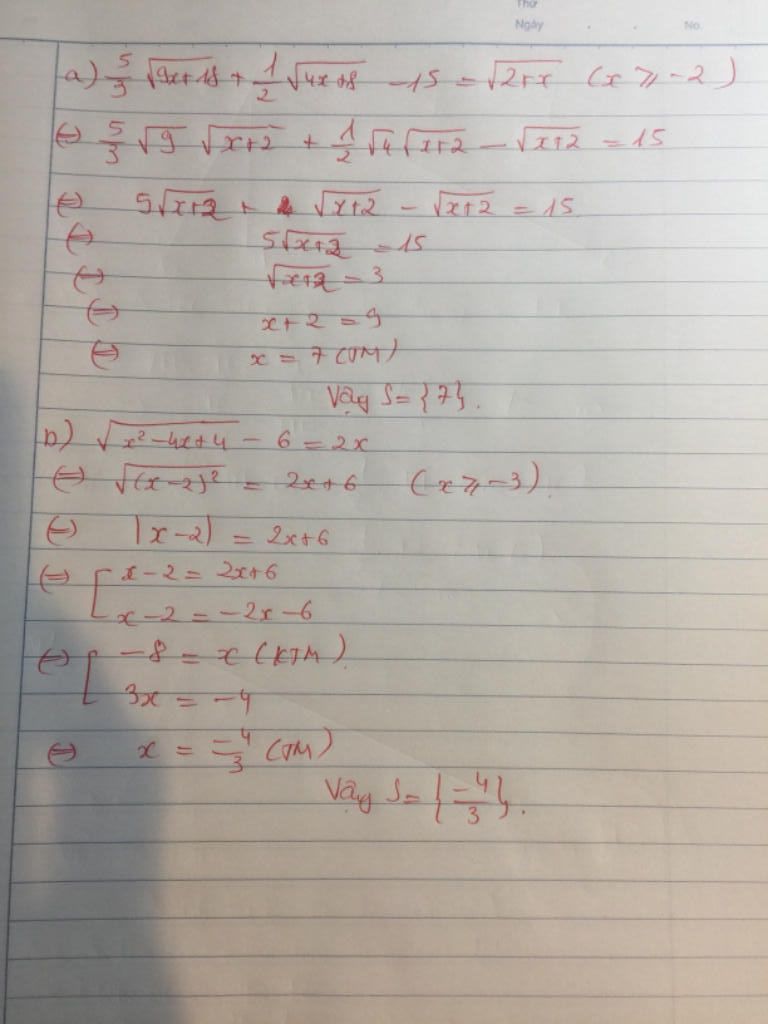 Thứ
Ngày . . No.
a) 5/3 √(9x+18) + 1/2 √(4x+8) - 15 = √(2+x) (x ⩾ -2)
⇔ 5/3 √9 √(x+2) + 1/2 √4 √(x+2) - √(x+2) = 15
⇔ 5√(x+2) + √(x+2) - √(x+2) = 15
⇔ 5√(x+2) = 15
⇔ √(x+2) = 3
⇔ x+2 = 9
⇔ x = 7 (TM)
Vậy S = {7}.
b) √(x²-4x+4) - 6 = 2x
⇔ √((x-2)²) = 2x+6 (x ⩾ -3)
⇔ |x-2| = 2x+6
⇔ [ x-2 = 2x+6
x-2 = -2x-6
⇔ [ -8 = x (KTM)
3x = -4
⇔ x = -4/3 (TM)
Vậy S = {-4/3}.